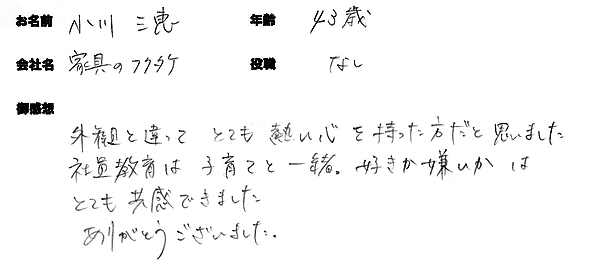 お名前 小川 三恵 年齢 43歳
会社名 家具のフクタケ 役職 なし
御感想
外観と違って とても 熱い心 を 持った方だと思いました
社員教育は 子育てと一緒。好きか嫌いか は
とても 共感できました
ありがとうございました。